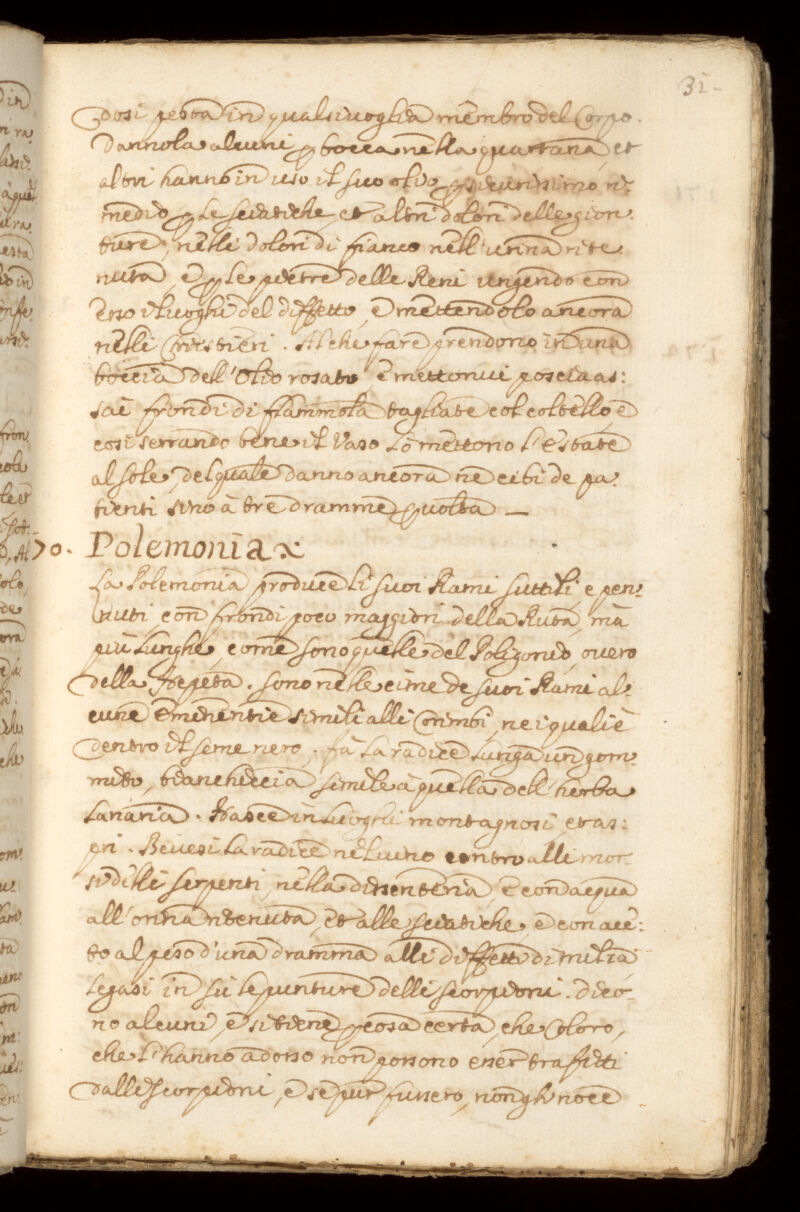 31
dosi pesta in qualsivoglia membro del Corpo.
Dannola alcuni p bocca nella quartana, et
altri hanno in uso il suo olio p sicurissimo ri=
medio p le sciatiche, et altri dolori delle gion=
ture, nelli dolori di fianco nell'urina rite=
nuta, è p le pietre delle Reni ungendo con
esso i luoghi del diffetto, è mettendolo ancora
nelli Cristieri. Al che fare prendono in una
boccia dell'Olio rosato è mettonvi poscia as:
sai frondi di fiammola tagliate col coltello, è
cosi serrando bene il Vaso lo mettono l'estate
al sole, del quale danno ancora ne cibi de pa=
tienti sino à tre dramme p volta —
70. Polemonia
La Polemonia produce li suoi Rami suttili, e pen=
nuti con frondi poco maggiori della Ruta, mà
più lunghe, come sono quelle del Poligonio, overo
della Nepeta. sono nelle cime de suoi Rami al=
cune eminentie simili alli Corimbi, ne i quali è
dentro il seme nero. fà la radice lunga un gom=
mito, bianchiccia simile à quella dell'herba
lanaria. Nasce in luoghi montagnosi et as:
pri. Bevesi la radice nel vino contro alli mor=
si delli serpenti, nella disenteria, è con acqua
all'orina ritenuta, et alle sciatiche, è con ace:
to al peso d'una dramma alli diffetti di milza
legasi in sù le punture delli scorpioni. dico=
no alcuni, è si tiene p cosa certa, che coloro,
che l'hanno adosso non possono esser trafitti
dalli scorpioni, è se pur fussero, non gli noce